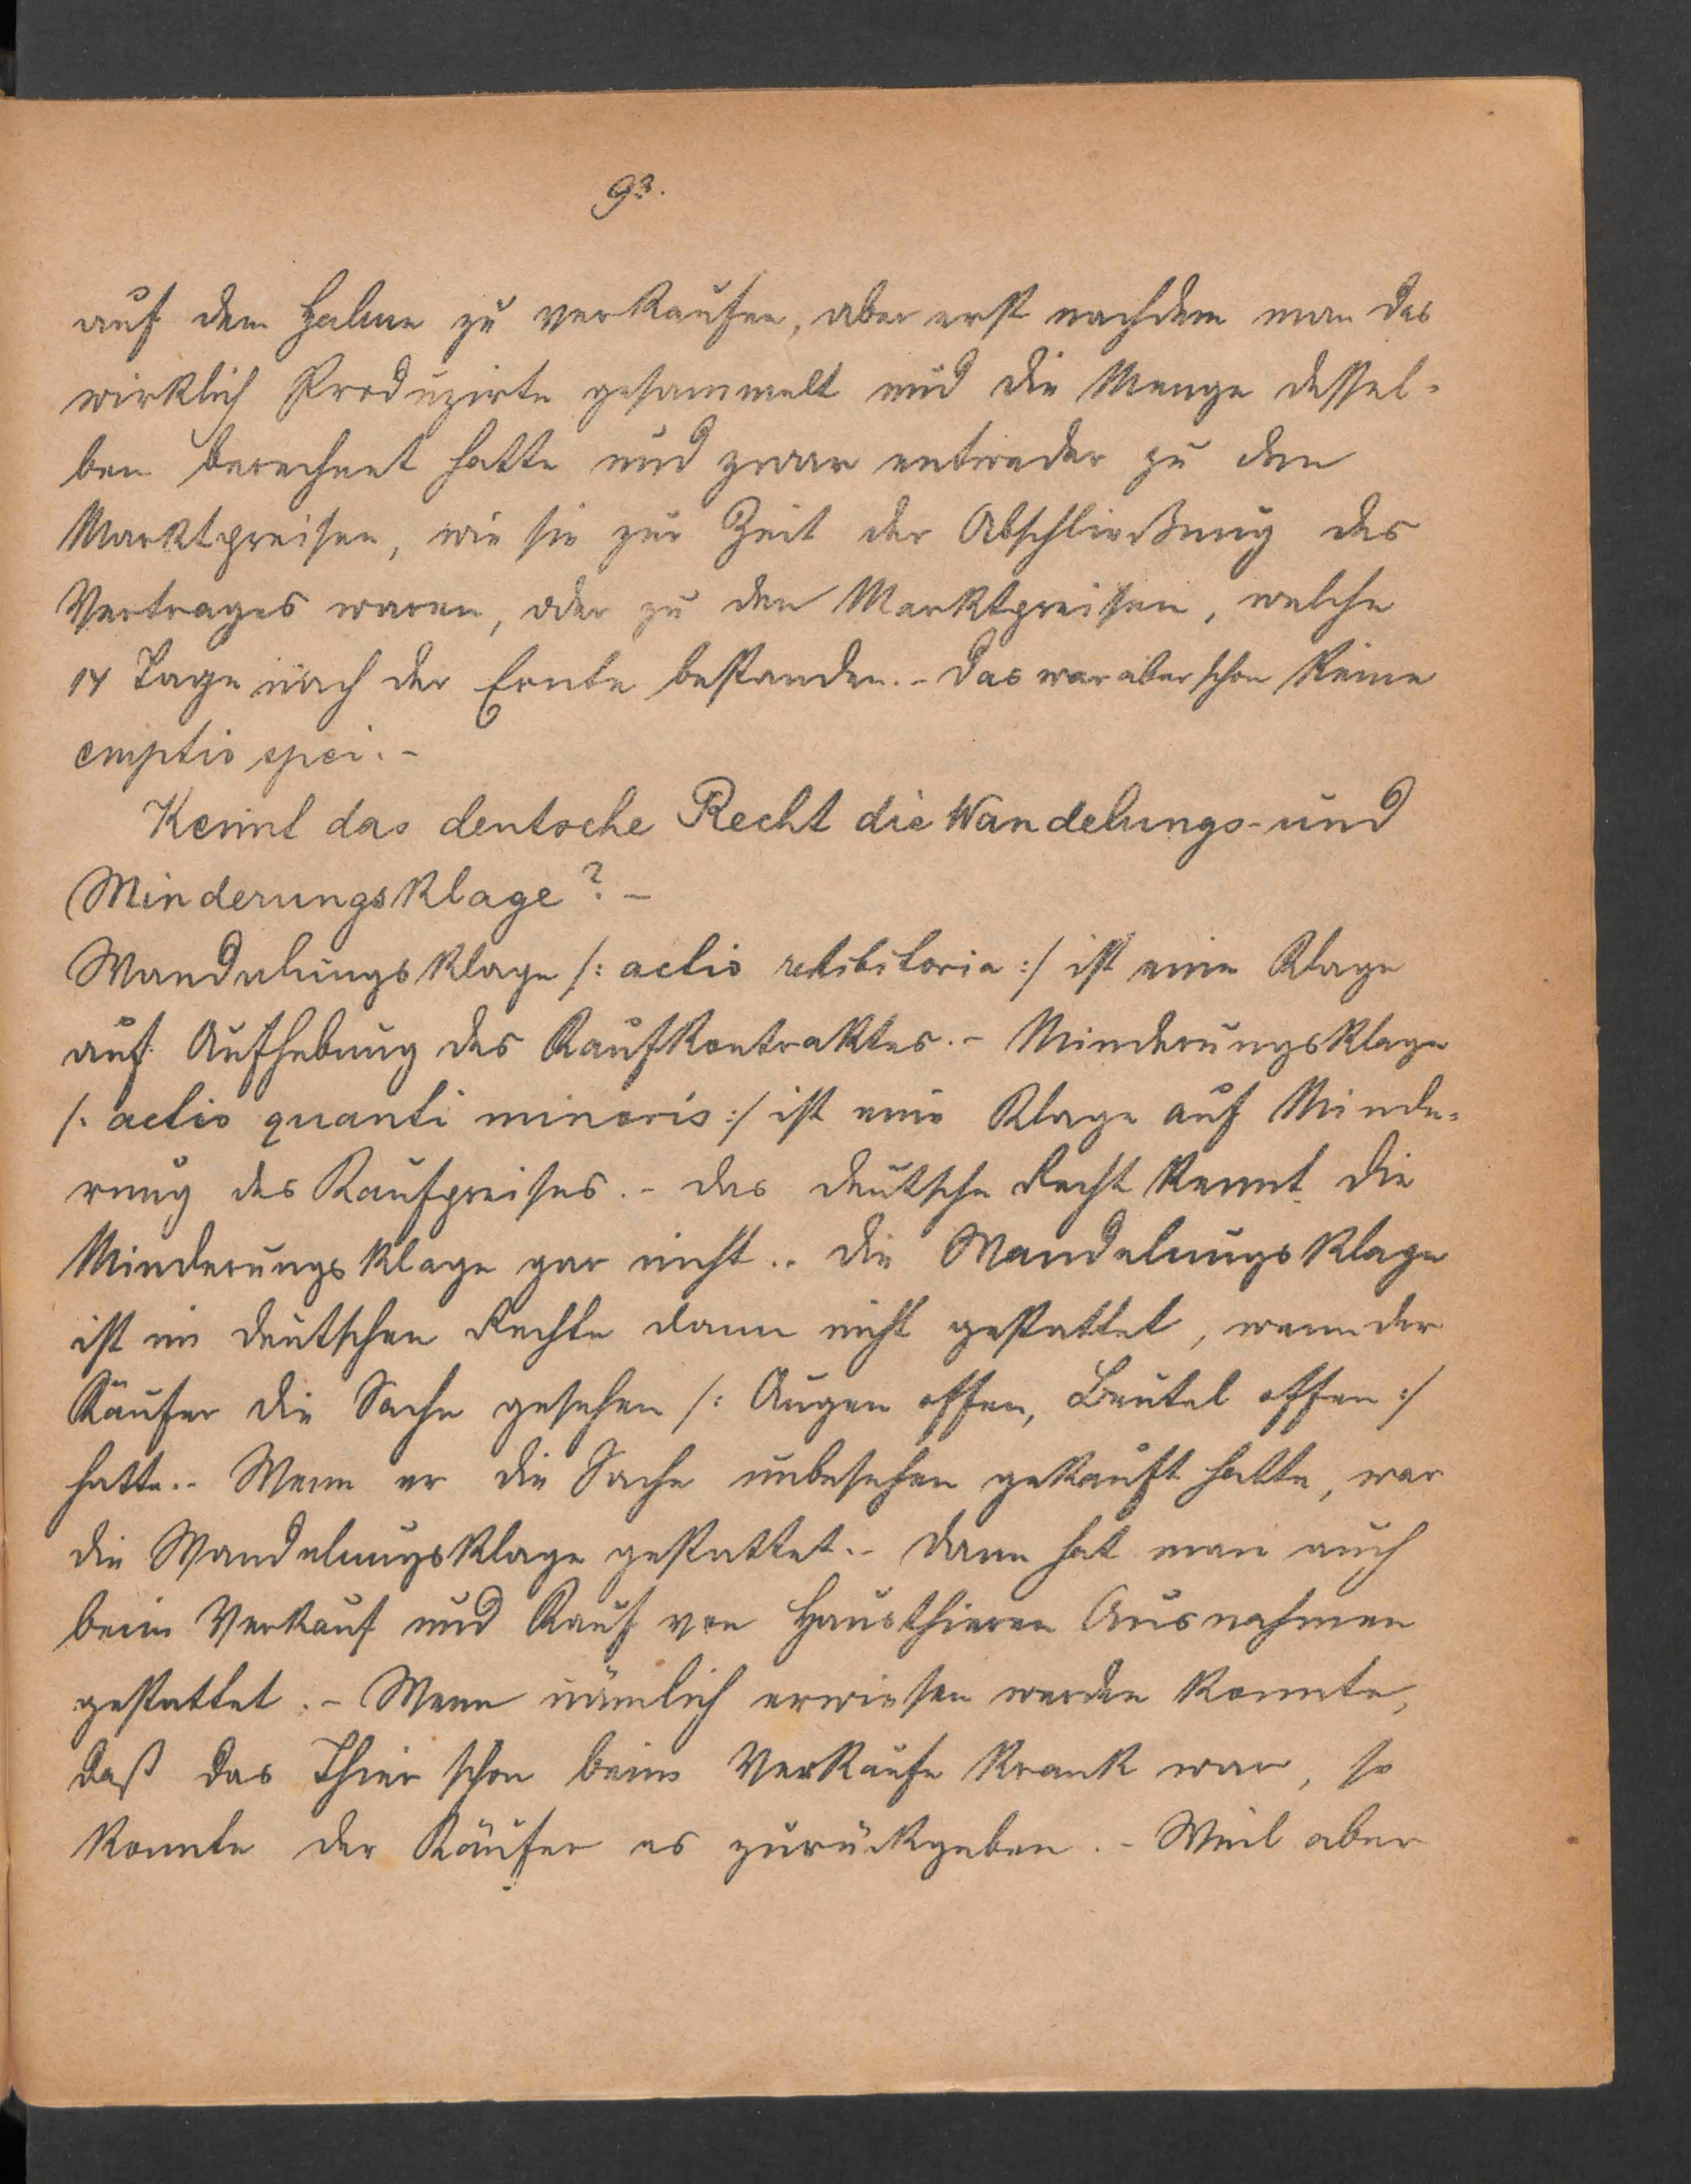 93.
auf dem Halme zu verkaufen, aber erst nachdem man das
wirklich Produzirte gesammelt und die Menge dessel-
ben berechnet hatte und zwar entweder zu den
Marktpreisen, wie sie zur Zeit der Abschließung des
Vertrages waren, oder zu den Marktpreisen, welche
14 Tage nach der Ernte bestanden.- Das war aber schon keine
emptio spei.-
Kennt das deutsche Recht die Wandelungs- und
Minderungsklage? -
Wandelungsklage /: actio redhibitoria :/ ist eine Klage
auf Aufhebung des Kaufkontraktes.- Minderungsklage
/: actio quanti minoris :/ ist eine Klage auf Minde-
rung des Kaufpreises.- Das deutsche Recht kennt die
Minderungsklage gar nicht.- Die Wandelungsklage
ist im deutschen Rechte dann nicht gestattet, wenn der
Käufer die Sache gesehen /: Augen offen, Beutel offen :/
hatte.- Wenn er die Sache unbesehen gekauft hatte, war
die Wandelungsklage gestattet.- Dann hat man auch
beim Verkauf und Kauf von Hausthieren Ausnahmen
gestattet.- Wenn nämlich erwiesen werden konnte,
daß das Thier schon beim Verkaufe krank war, so
konnte der Käufer es zurückgeben.- Weil aber